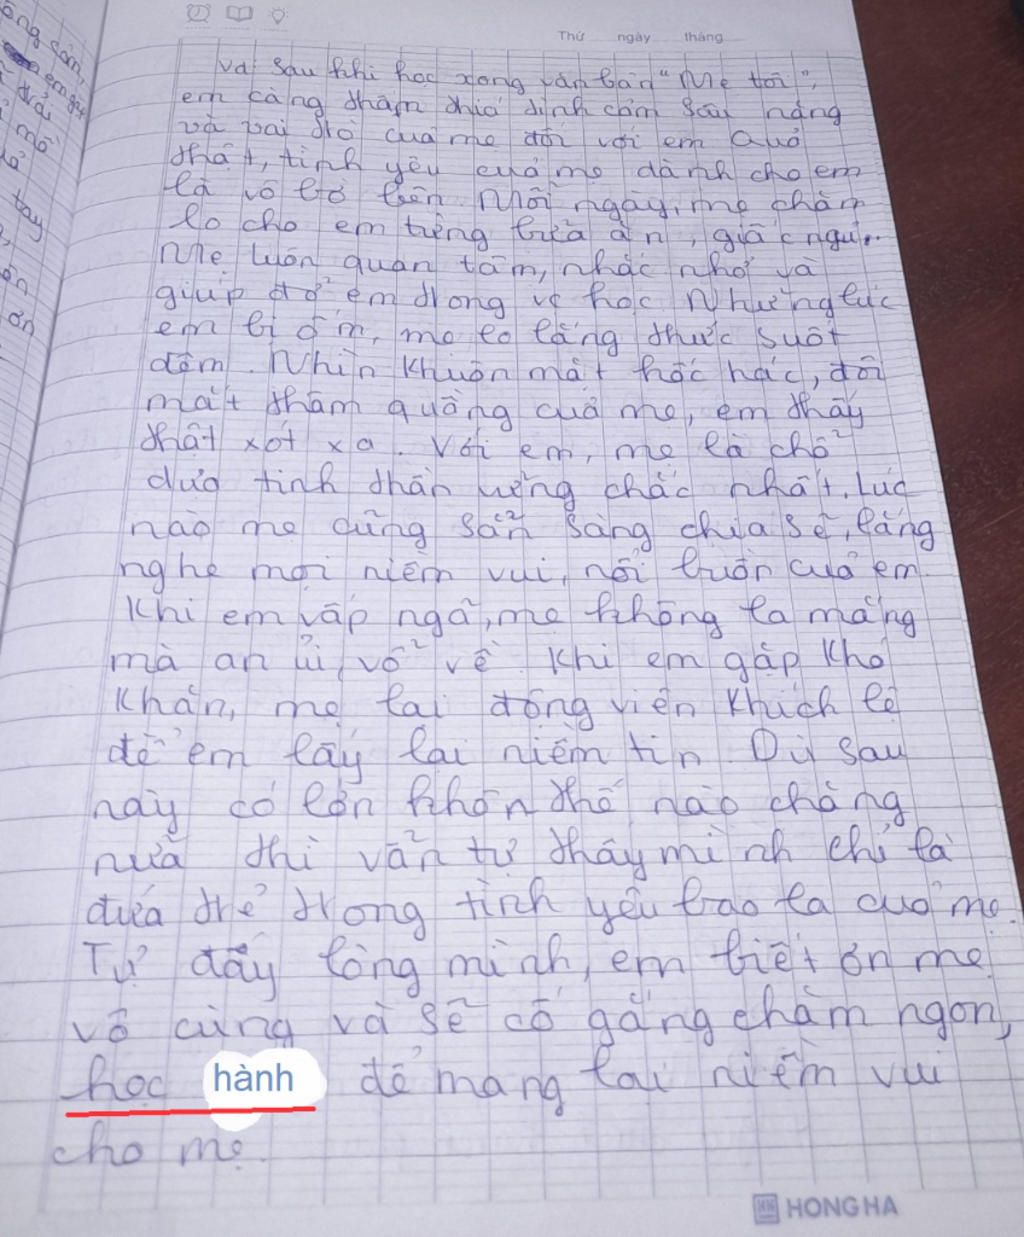 Thứ ngày tháng
Và sau khi học xong văn bản "Mẹ tôi",
em càng thấm thía tình cảm sâu nặng
và vai trò của mẹ đối với em Quả
thật, tình yêu của mẹ dành cho em
là vô bờ bến Mỗi ngày, mẹ chăm
lo cho em từng bữa ăn, giấc ngủ..
Mẹ luôn quan tâm, nhắc nhở và
giúp đỡ em trong việc học Những lúc
em bị ốm, mẹ lo lắng thức suốt
đêm. Nhìn khuôn mặt hốc hác, đôi
mắt thâm quầng của mẹ, em thấy
thật xót xa. Với em, mẹ là chỗ
dựa tinh thần vững chắc nhất. Lúc
nào mẹ cũng sẵn sàng chia sẻ, lắng
nghe mọi niềm vui, nỗi buồn của em.
Khi em vấp ngã, mẹ không la mắng
mà an ủi, vỗ về. Khi em gặp khó
khăn, mẹ lại động viên khích lệ
để em lấy lại niềm tin Dù sau
này có lớn khôn thế nào chăng
nữa thì vẫn tự thấy mình chỉ là
đứa trẻ trong tình yêu bao la của mẹ.
Từ đáy lòng mình, em biết ơn mẹ
vô cùng và sẽ cố gắng chăm ngoan,
học hành để mang lại niềm vui
cho mẹ.
HONG HA